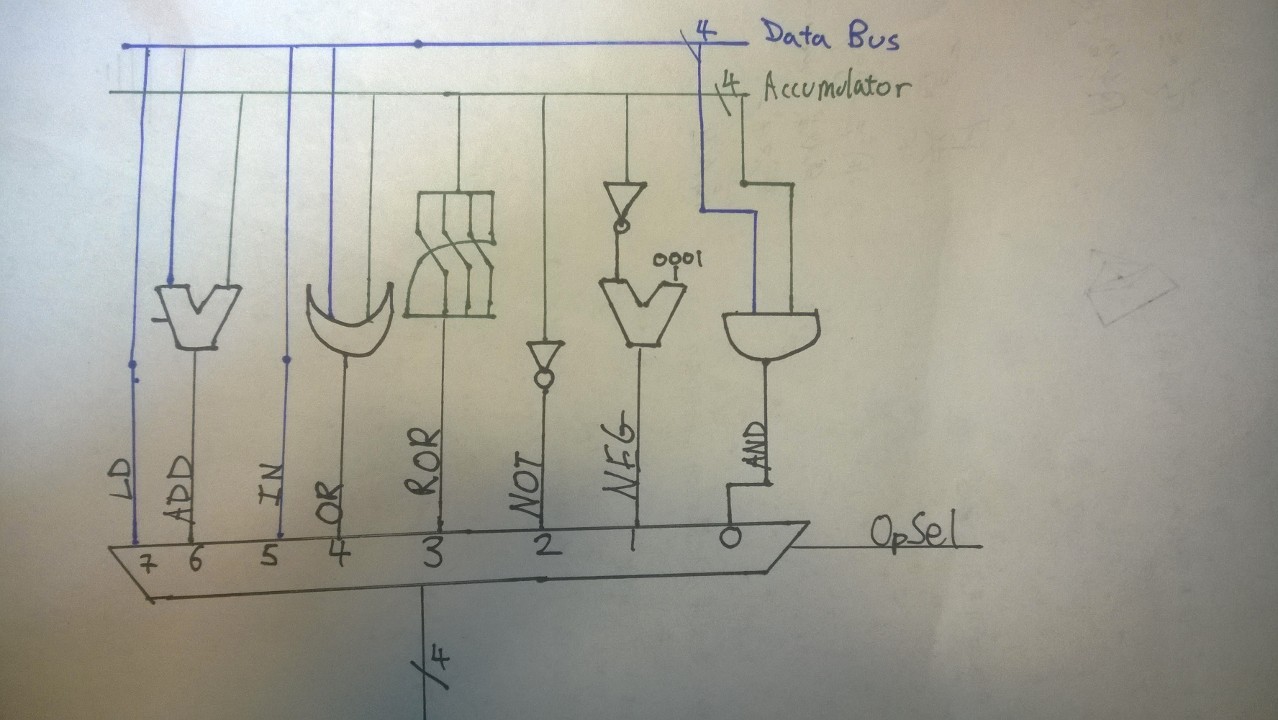 4 Data Bus
4 Accumulator
0001
LD
ADD
IN
OR
ROR
NOT
NEG
AND
OpSel
7 6 5 4 3 2 1 0
4